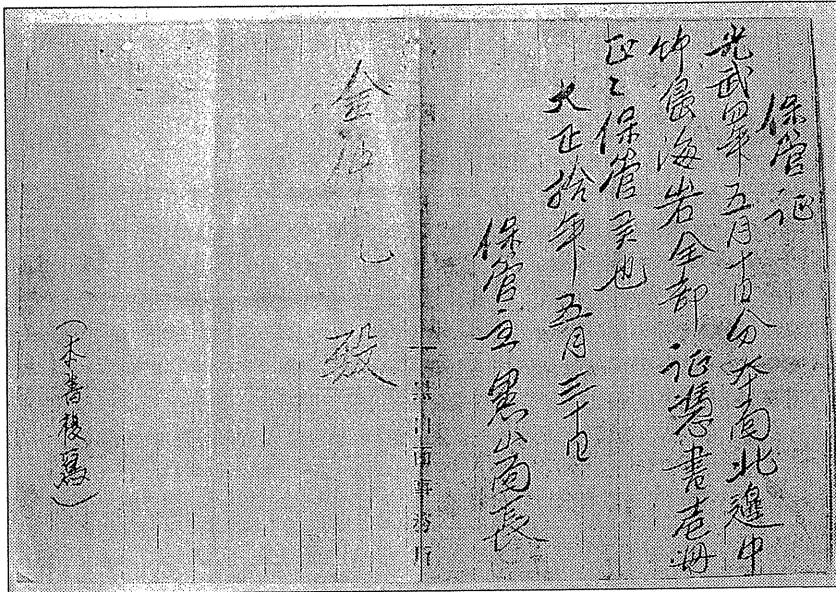 保管证
光武四年五月十日分本面北邊中
竹島海岩全部 证憑書壱冊
正之保管豆也
大正拾年五月三十日
保管主 黑山面長
黑山面事務所
金 殷
(本書複寫)